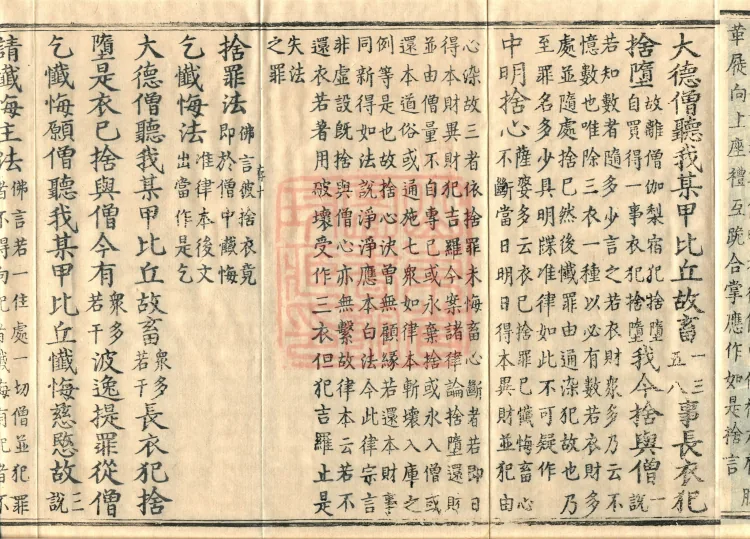 革屣向上座禮互跪合掌應作如是捨言
大德僧聽我某甲比丘故畜一三五八事長衣犯
捨墮故離僧伽梨宿犯捨墮自買得一事衣犯捨墮我今捨與僧一說
若知數者隨多少言之若衣財眾多乃云不
憶數也唯除三衣一種以必有數若衣財多
處並隨處捨已然後懺罪由通染犯故也乃
至罪名多少具明牒准律如此不可疑作
中明捨心薩婆多云衣已捨罪已懺悔畜心不斷當日明日得本異財並犯由
心染故三者依捨罪未悔畜心斷者若即日
得本財異財犯吉羅今案諸律論捨墮還財
並由僧量不自專已或永棄捨或永入僧或
還本道俗或通施七眾如律本斬壞入庫之
例等是也故捨心決曾無顧緣若還本財事
同新得如法說淨淨應本白法今此律宗言
非虛設既捨與僧心亦無繫故律本云若不
還衣若者用破壞受作三衣但犯吉羅止是
失法
之罪
捨罪法佛言彼捨衣竟即於僧中懺悔
乞懺悔法准律本後文出當作是乞
大德僧聽我某甲比丘故畜眾多若干長衣犯捨
墮是衣已捨與僧今有眾多若干波逸提罪從僧
乞懺悔願僧聽我某甲比丘懺悔慈愍故三說
請懺悔主法佛言若一住處一切僧並犯罪者不得向犯者懺悔有犯者不